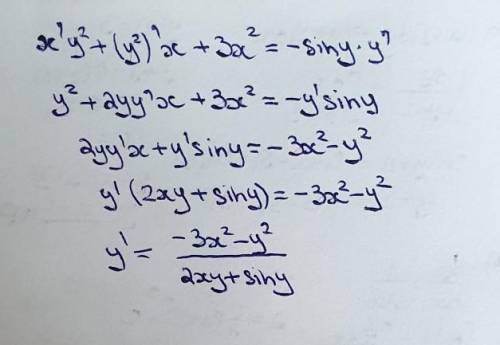 x'y² + (y²)'x + 3x² = -siny·y'
y² + 2yy'x + 3x² = -y'siny
2yy'x + y'siny = -3x² - y²
y'(2xy + siny) = -3x² - y²
y' = (-3x² - y²)/(2xy + siny)